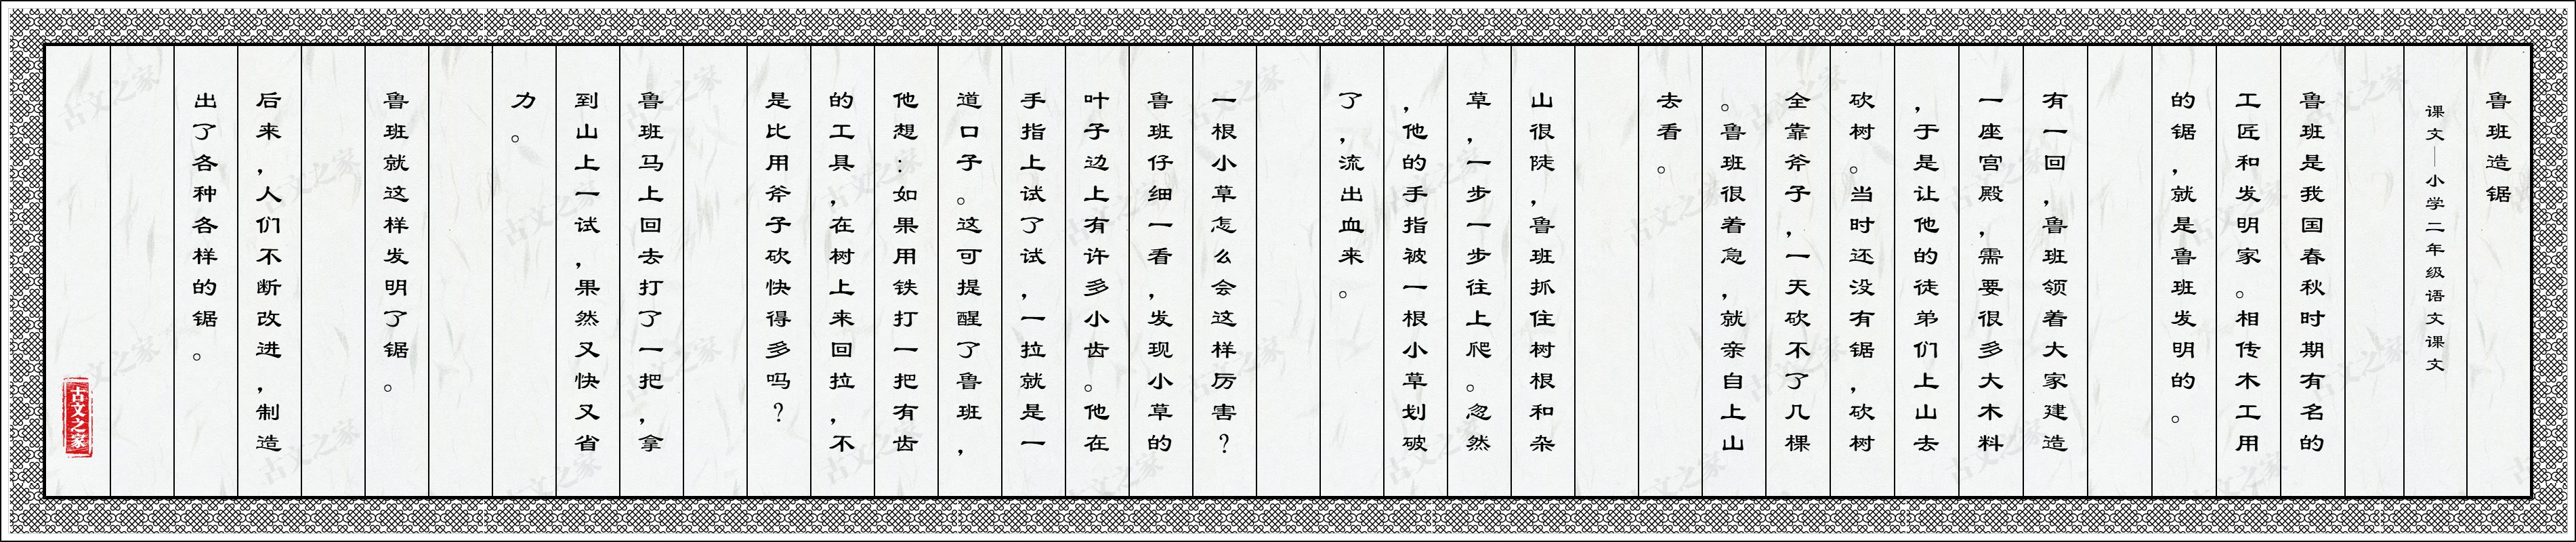 鲁班造锯
课文—小学二年级语文课文
鲁班是我国春秋时期有名的
工匠和发明家。相传木工用
的锯，就是鲁班发明的。
有一回，鲁班领着大家建造
一座宫殿，需要很多大木料
，于是让他的徒弟们上山去
砍树。当时还没有锯，砍树
全靠斧子，一天砍不了几棵
。鲁班很着急，就亲自上山
去看。
山很陡，鲁班抓住树根和杂
草，一步一步往上爬。忽然
，他的手指被一根小草划破
了，流出血来。
一根小草怎么会这样厉害？
鲁班仔细一看，发现小草的
叶子边上有许多小齿。他在
手指上试了试，一拉就是一
道口子。这可提醒了鲁班，
他想：如果用铁打一把有齿
的工具，在树上来回拉，不
是比用斧子砍快得多吗？
鲁班马上回去打了一把，拿
到山上一试，果然又快又省
力。
鲁班就这样发明了锯。
后来，人们不断改进，制造
出了各种各样的锯。
古文之家